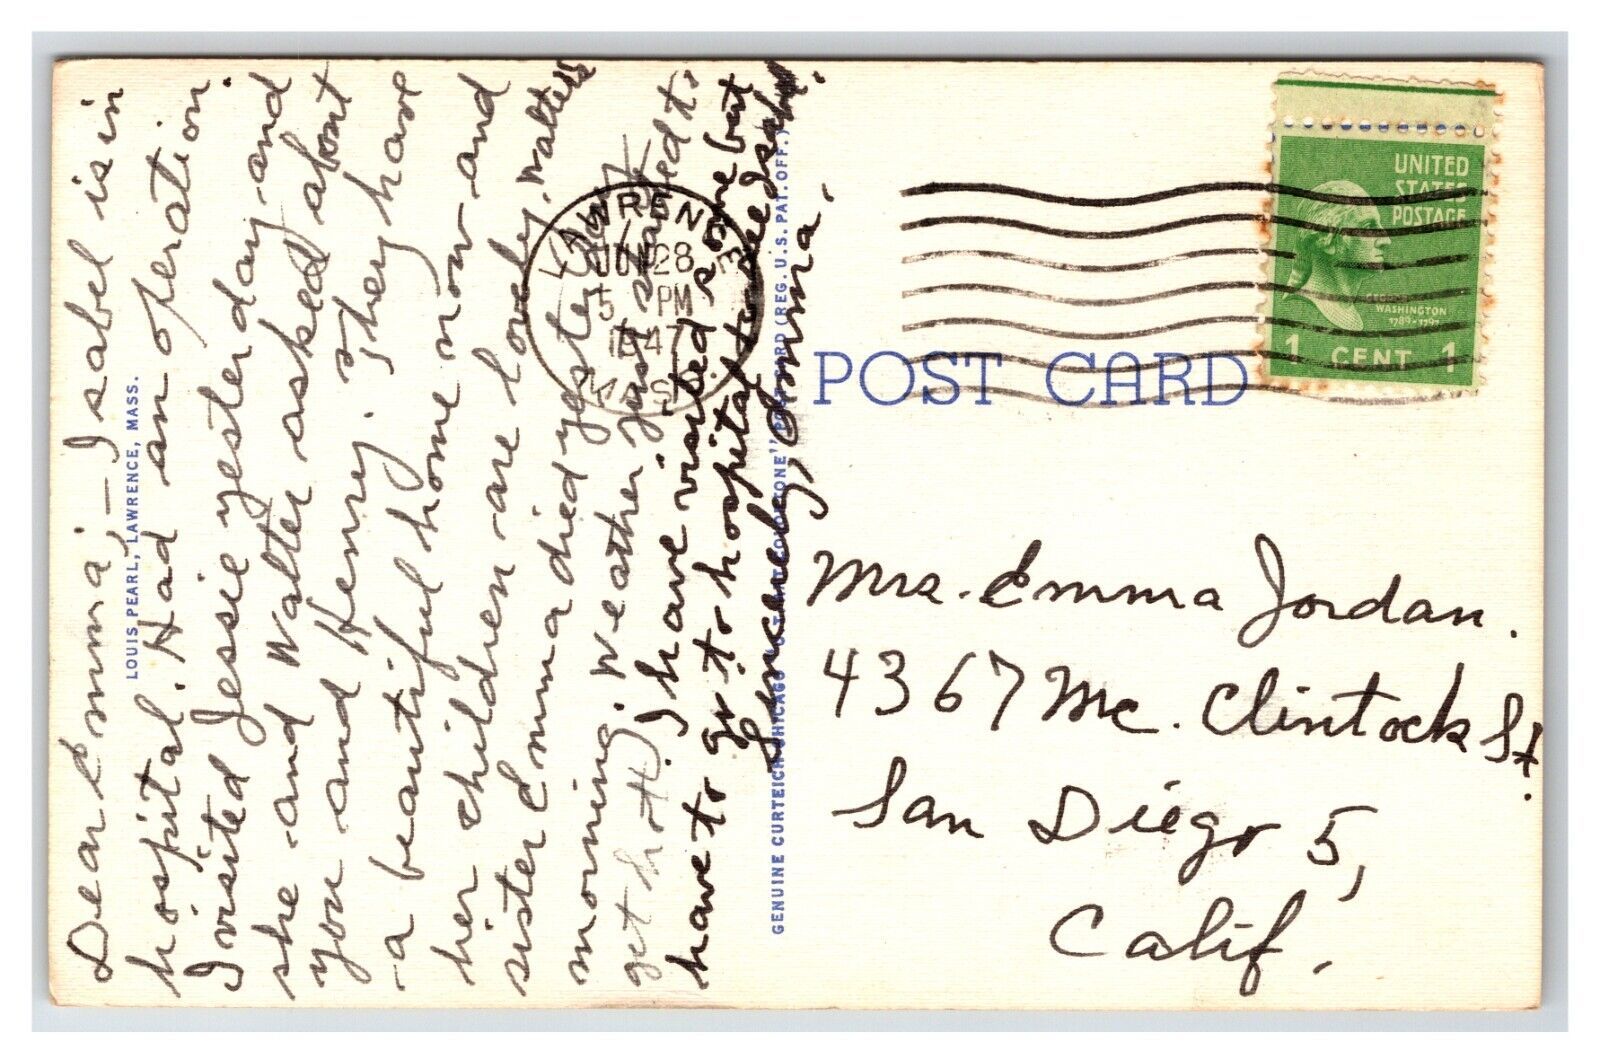 Dear Emma; — Isabel is in
hospital. Had an operation.
I visited Jessie yesterday and
she and Walter asked about
you and Henry. They have
a beautiful home now and
her children are lovely. Walter's
sister Emma died yesterday
morning. Weather just started to
get hot. I have visited some but
have to go to hospital to see Isabel.
Sincerely, Emma.
LOUIS PEARL, LAWRENCE, MASS.
GENUINE CURTEICH-CHICAGO "C.T. ART-COLORTONE" POST CARD (REG. U.S. PAT. OFF.)
LAWRENCE
JUN 28
5 PM
1947
MASS.
UNITED
STATES
POSTAGE
WASHINGTON
1789-1797
1 CENT 1
POST CARD
Mrs. Emma Jordan.
4367 Mc. Clintock St.
San Diego 5,
Calif.